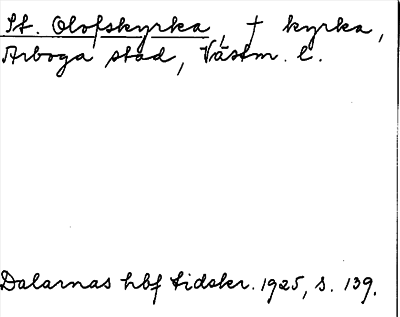 St. Olofskyrka, † kyrka,
Arboga stad, Västm. l.
Dalarnas hbf tidskr. 1925, s. 139.